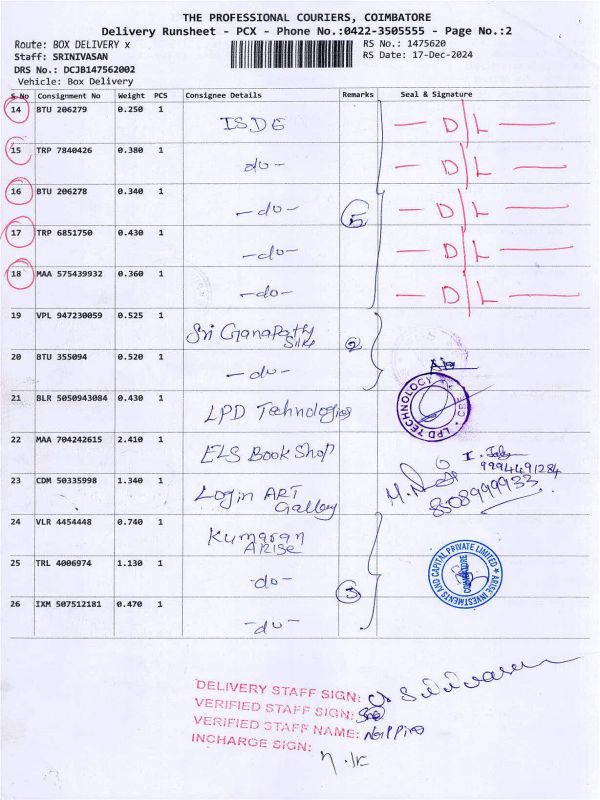 THE PROFESSIONAL COURIERS, COIMBATORE
Delivery Runsheet - PCX - Phone No.:0422-3505555 - Page No.:2
Route: BOX DELIVERY x
RS No.: 1475620
Staff: SRINIVASAN
RS Date: 17-Dec-2024
DRS No.: DCJB147562002
Vehicle: Box Delivery
S No Consignment No Weight PCS Consignee Details Remarks Seal & Signature
14 BTU 206279 0.250 1 ISDG — D/L —
15 TRP 7840426 0.380 1 do - — D/L —
16 BTU 206278 0.340 1 - do - 5 — D/L —
17 TRP 6851750 0.430 1 - do - — D/L —
18 MAA 575439932 0.360 1 - do - — D/L —
19 VPL 947230059 0.525 1 Sri Ganapathy Silks 2
20 BTU 355094 0.520 1 - do -
21 BLR 5050943084 0.430 1 LPD Technologies LPD TECHNOLOGY CBE
22 MAA 704242615 2.410 1 ELS Book Shop
9994491284
23 CDM 50335998 1.340 1 Login ART Gallery
8508999933
24 VLR 4454448 0.740 1 Kumaran ARISE
25 TRL 4006974 1.130 1 - do - 3 ARISE INVESTMENTS AND CAPITAL PRIVATE LIMITED COIMBATORE
26 IXM 507512181 0.470 1 - do -
DELIVERY STAFF SIGN: Srinivasan
VERIFIED STAFF SIGN:
VERIFIED STAFF NAME:
INCHARGE SIGN: